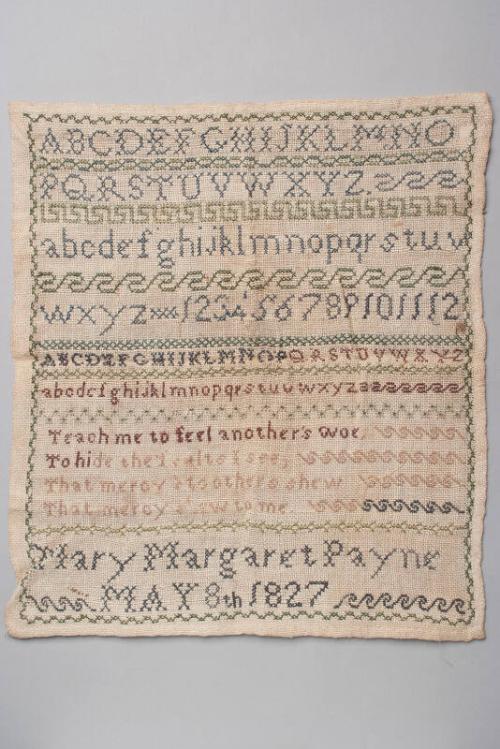 ABCDEFGHIJKLMNO
PQRSTUVWXYZ
abcdefghijklmnopqrstuv
wxyz 123456789101112
ABCDEFGHIJKLMNOPQRSTUVWXYZ
abcdefghijklmnopqrstuvwxyz
Teach me to feel another's woe
To hide the I see;
That mercy I to others shew
That mercy to me
Mary Margaret Payne
MAY 8th 1827